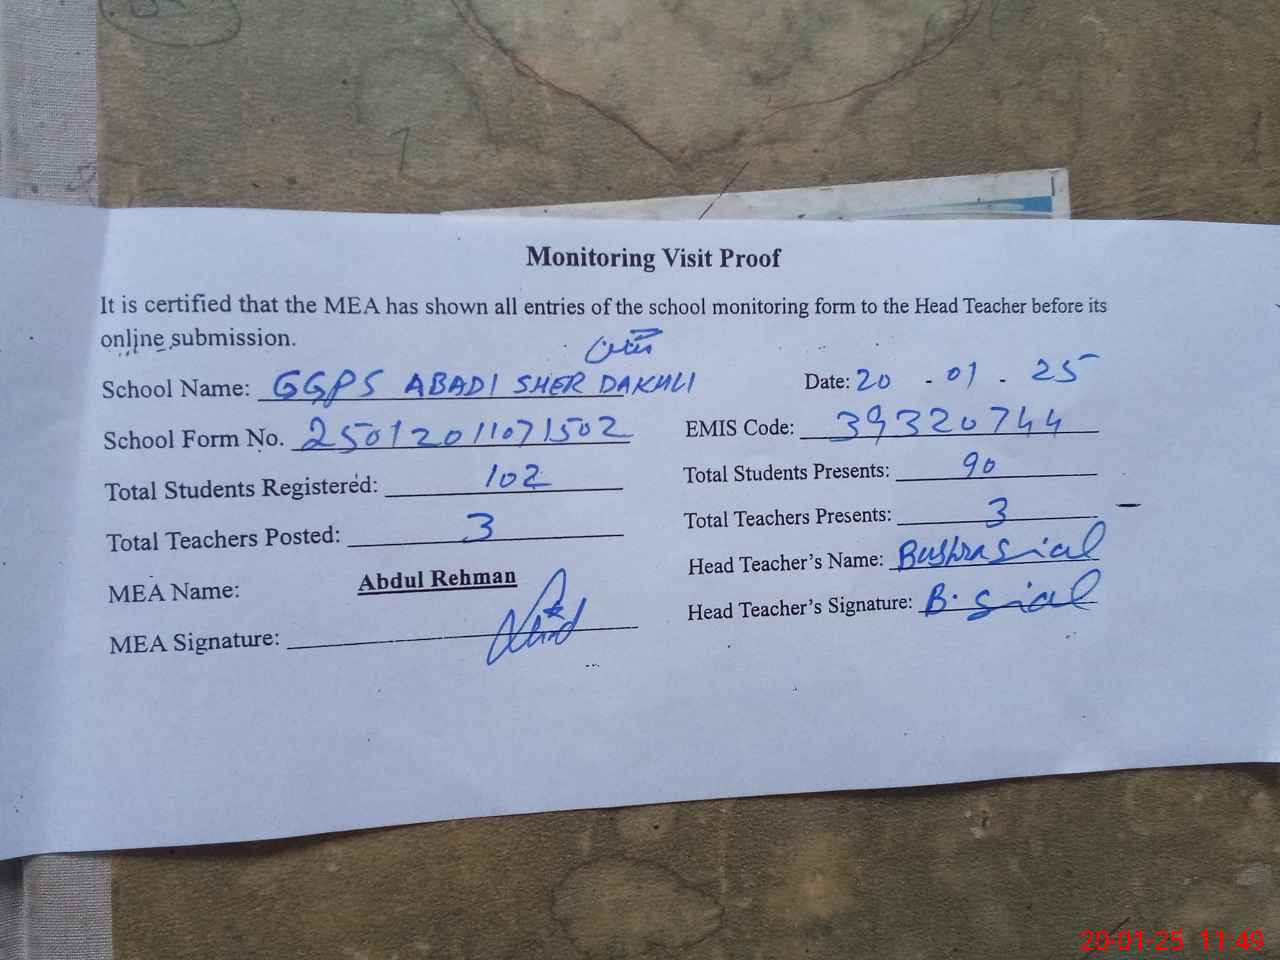 Monitoring Visit Proof
It is certified that the MEA has shown all entries of the school monitoring form to the Head Teacher before its
online submission.
School Name: GGPS ABADI SHER DAKHLI Date: 20 - 01 - 25
School Form No. 25012011071502 EMIS Code: 39320744
Total Students Registered: 102 Total Students Presents: 90
Total Teachers Posted: 3 Total Teachers Presents: 3
MEA Name: Abdul Rehman Head Teacher's Name: Bushra Sial
MEA Signature: Head Teacher's Signature: B. Sial
20-01-25 11:49